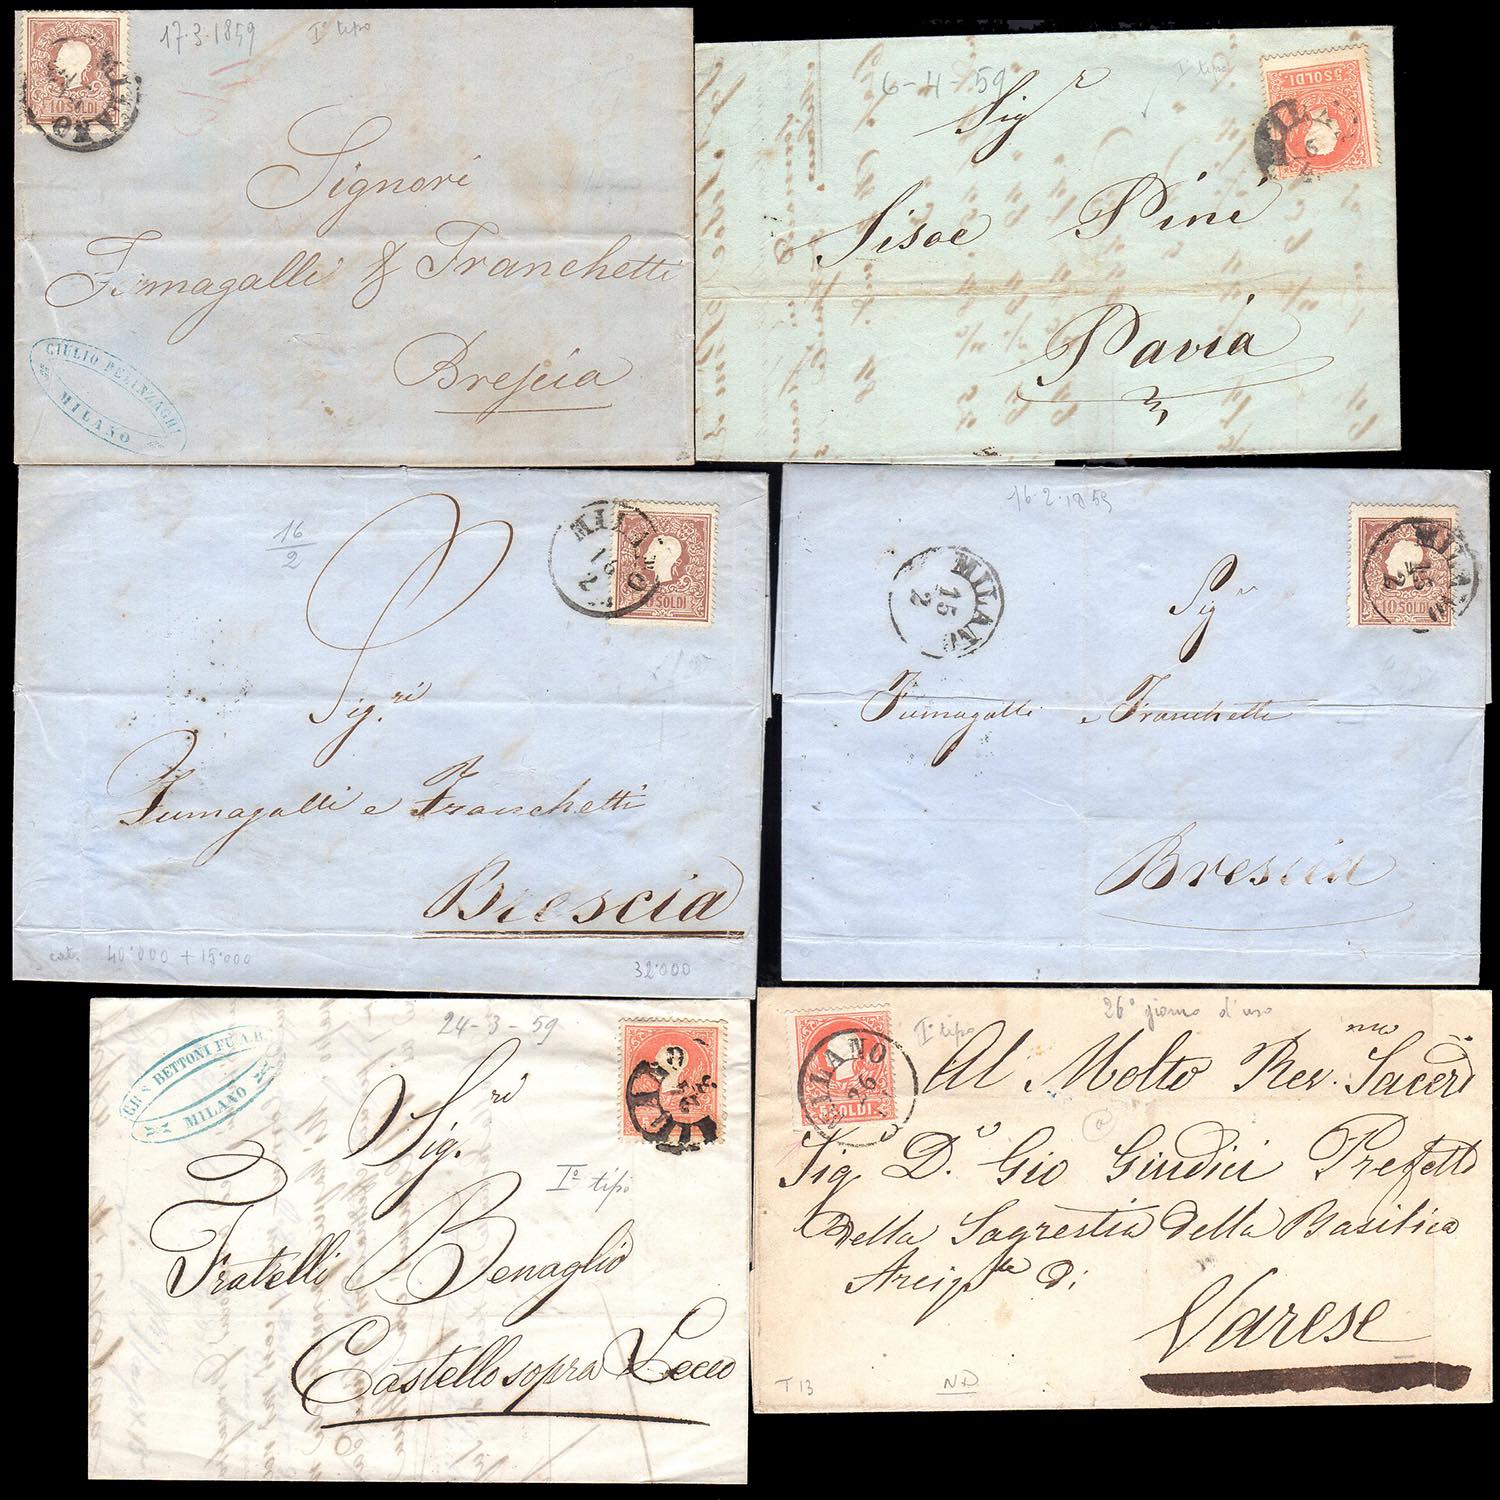 17-3-1859 I° tipo
10 SOLDI
MILANO
Signori
Fumagalli & Franchetti
Brescia
GIULIO BELINZAGHI
MILANO
6-4-59
I° tipo
5 SOLDI.
MILANO
6
4
Sigr
Sisoe Pini
Pavia
16
2
MILANO
16
2
SOLDI
Sig.ri
Fumagalli e Franchetti
Brescia
cat. 40.000 + 15.000
32.000
16-2-1859
MILANO
15
2
MILANO
15
2
10 SOLDI
Sigri
Fumagalli e Franchetti
Brescia
BETTONI
MILANO
24-3-59
MILANO
Sig.ri
I° tipo
Fratelli Benaglio
Castello sopra Lecco
26° giorno d'uso
I° tipo
MILANO
26
5 SOLDI
Al Molto Rev.mo Sacerd
Sig D.n Gio Giudici Prefetto
della Sagrestia della Basilica
Arcip.le di
Varese
T 13